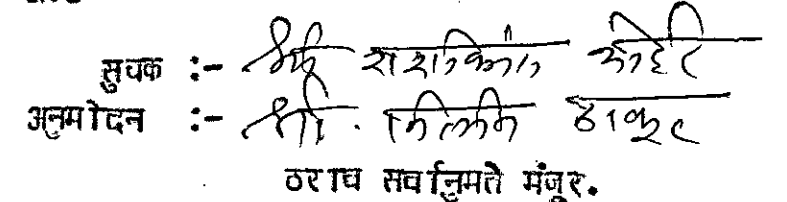 सुचक :- श्री शशीकांत अहेर
अनुमोदन :- श्री. ठाकूर
ठराव सर्वानुमते मंजुर.